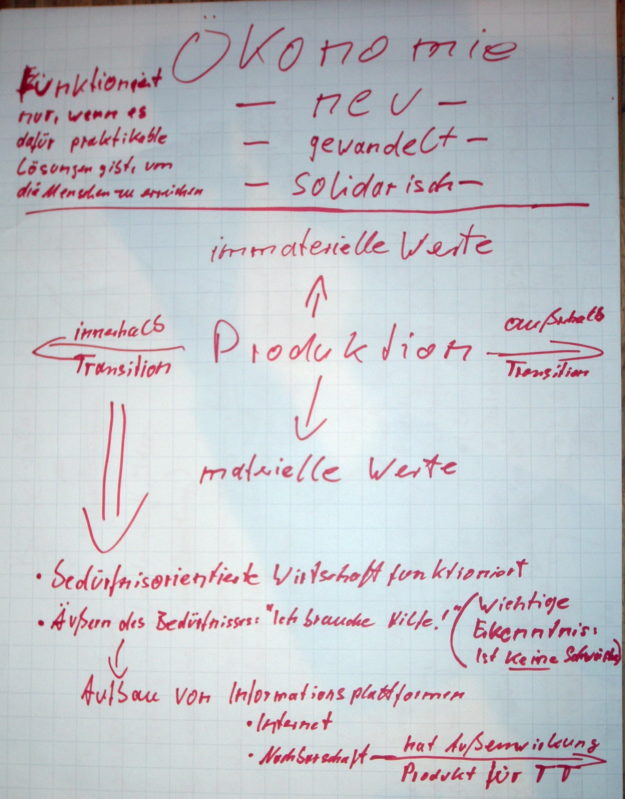 Ökonomie
Funktioniert
nur, wenn es
dafür praktikable
Lösungen gibt, um
die Menschen zu erreichen
— neu —
— gewandelt —
— solidarisch —
immaterielle Werte
innerhalb
Transition
Produktion
außerhalb
Transition
materielle Werte
• Bedürfnisorientierte Wirtschaft funktioniert
• Äußern des Bedürfnisses: "Ich brauche Hilfe!"
(Wichtige
Erkenntnis:
Ist keine Schwäche)
Aufbau von Informationsplattformen
• Internet
• Nachbarschaft
hat Außenwirkung
Produkt für TT